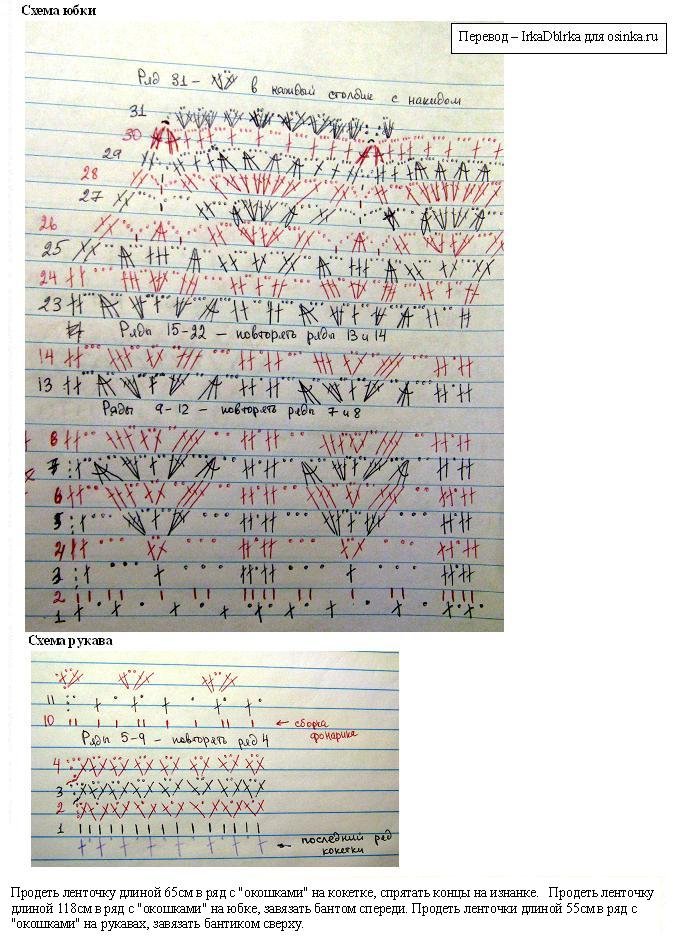 Схема юбки
Перевод – IrkaDblrka для osinka.ru
Ряд 31 – в каждый столбик с накидом
31
30
29
28
27
26
25
24
23
Ряды 15-22 – повторять ряды 13 и 14
14
13
Ряды 9-12 – повторять ряды 7 и 8
8
7
6
5
4
3
2
1
Схема рукава
11
10 ← сборка фонарика
Ряды 5-9 – повторять ряд 4
4
3
2
1
← последний ряд кокетки
Продеть ленточку длиной 65см в ряд с "окошками" на кокетке, спрятать концы на изнанке. Продеть ленточку
длиной 118см в ряд с "окошками" на юбке, завязать бантом спереди. Продеть ленточки длиной 55см в ряд с
"окошками" на рукавах, завязать бантиком сверху.